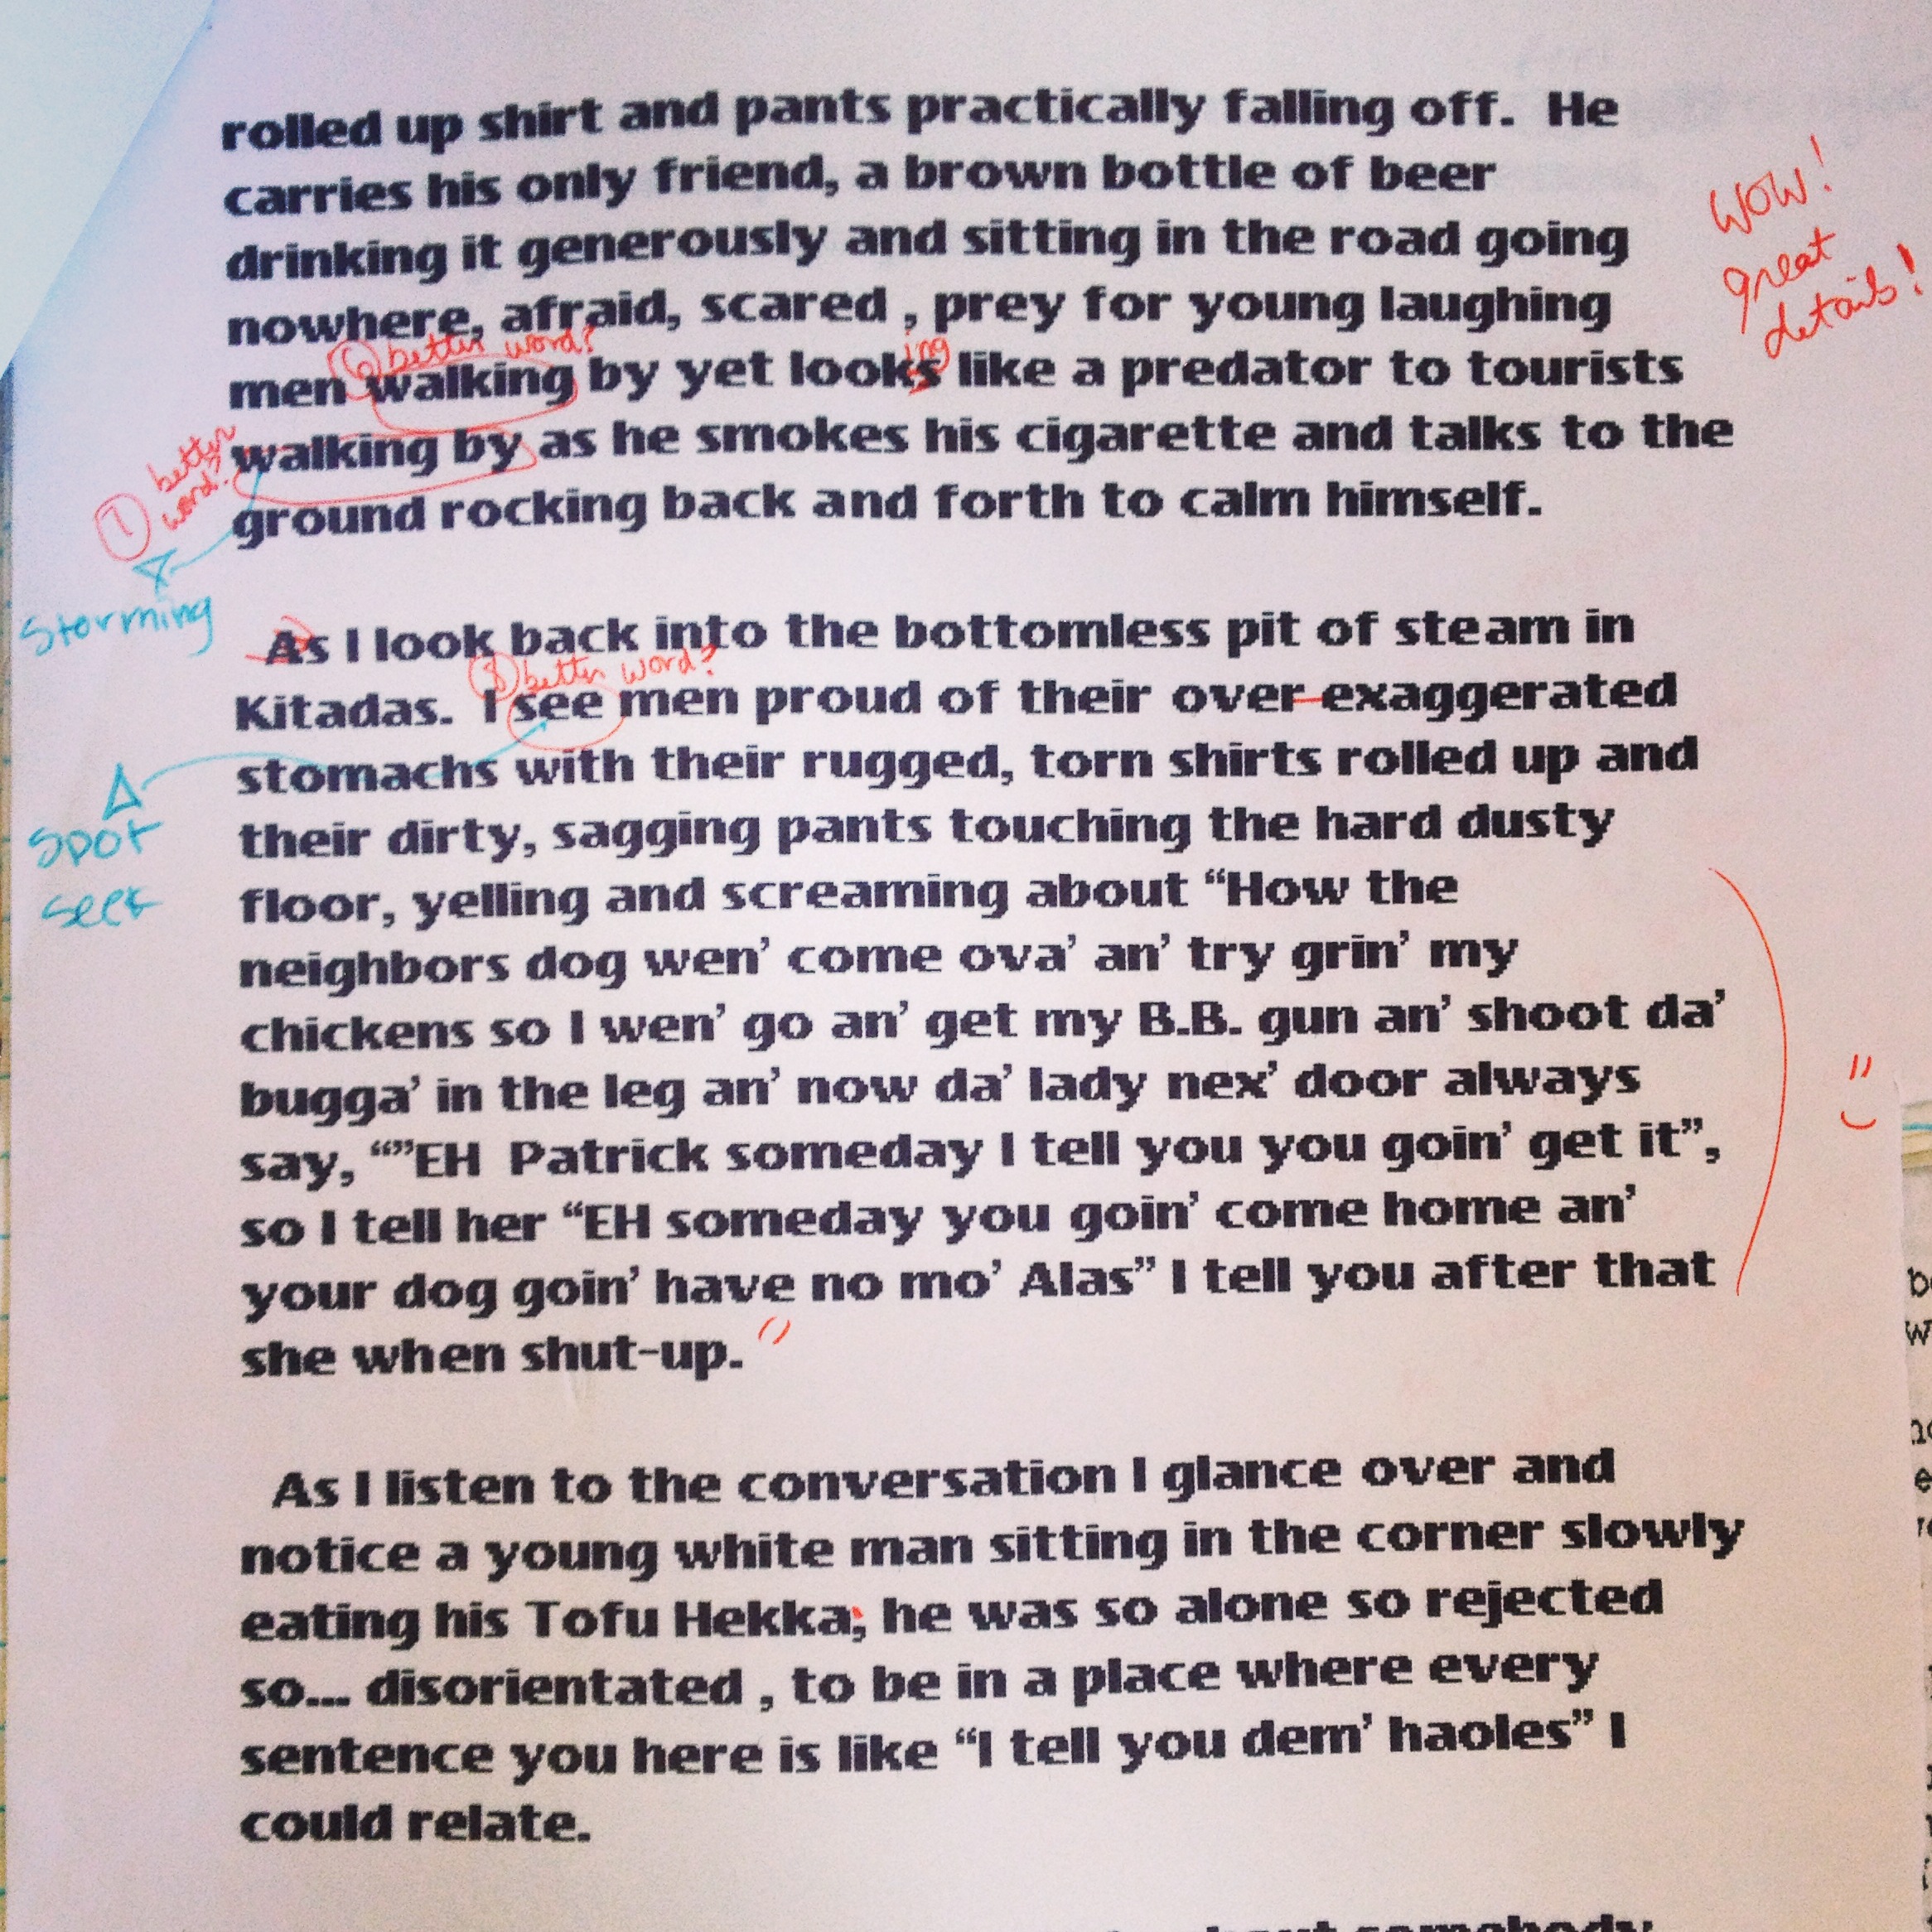 rolled up shirt and pants practically falling off. He
carries his only friend, a brown bottle of beer
drinking it generously and sitting in the road going
nowhere, afraid, scared , prey for young laughing
WOW!
great
details!
6 better word?
ing
men walking by yet looks like a predator to tourists
walking by as he smokes his cigarette and talks to the
better
word?
ground rocking back and forth to calm himself.
Storming
As I look back into the bottomless pit of steam in
8 better word?
Kitadas. I see men proud of their over exaggerated
stomachs with their rugged, torn shirts rolled up and
their dirty, sagging pants touching the hard dusty
Spot
seek
floor, yelling and screaming about “How the
neighbors dog wen’ come ova’ an’ try grin’ my
chickens so I wen’ go an’ get my B.B. gun an’ shoot da’
bugga’ in the leg an’ now da’ lady nex’ door always
say, “”EH Patrick someday I tell you you goin’ get it”,
so I tell her “EH someday you goin’ come home an’
your dog goin’ have no mo’ Alas” I tell you after that
she when shut-up. ”
As I listen to the conversation I glance over and
notice a young white man sitting in the corner slowly
eating his Tofu Hekka; he was so alone so rejected
so... disorientated , to be in a place where every
sentence you here is like “I tell you dem’ haoles” I
could relate.
somebody